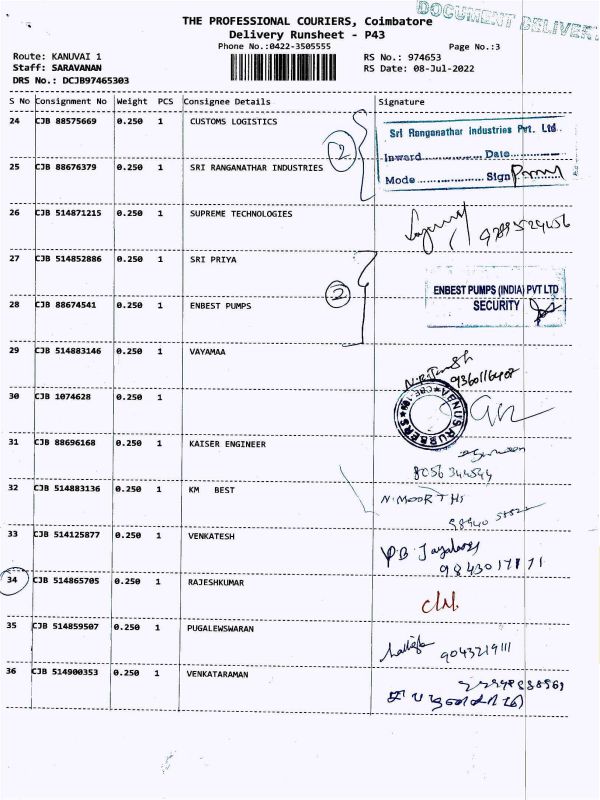 DOCUMENT DELIVERY
THE PROFESSIONAL COURIERS, Coimbatore
Delivery Runsheet - P43
Phone No.:0422-3505555
Page No.:3
Route: KANUVAI 1
RS No.: 974653
Staff: SARAVANAN
RS Date: 08-Jul-2022
DRS No.: DCJB97465303
S No Consignment No Weight PCS Consignee Details Signature
24 CJB 88575669 0.250 1 CUSTOMS LOGISTICS
Sri Ranganathar Industries Pvt. Ltd.
2
Inward.................. Date...............
25 CJB 88676379 0.250 1 SRI RANGANATHAR INDUSTRIES
Mode.................. Sign..............
26 CJB 514871215 0.250 1 SUPREME TECHNOLOGIES
27 CJB 514852886 0.250 1 SRI PRIYA
2
ENBEST PUMPS (INDIA) PVT LTD
SECURITY
28 CJB 88674541 0.250 1 ENBEST PUMPS
29 CJB 514883146 0.250 1 VAYAMAA
9360116408
30 CJB 1074628 0.250 1
31 CJB 88696168 0.250 1 KAISER ENGINEER
8056344544
32 CJB 514883136 0.250 1 KM BEST
N.MOORTHI
33 CJB 514125877 0.250 1 VENKATESH
34 CJB 514865705 0.250 1 RAJESHKUMAR
35 CJB 514859507 0.250 1 PUGALEWSWARAN
9043219111
36 CJB 514900353 0.250 1 VENKATARAMAN